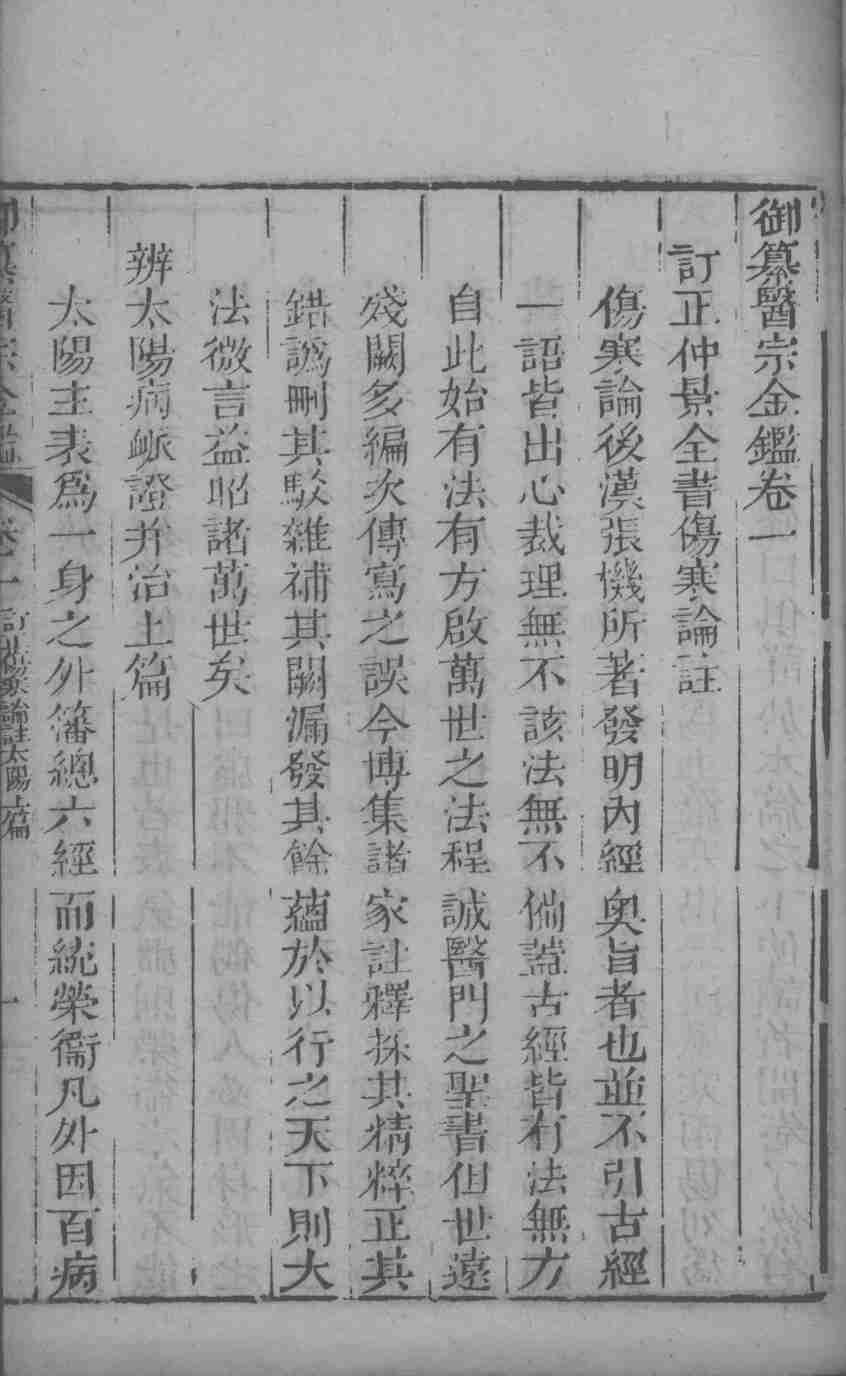 御纂醫宗金鑑卷一
訂正仲景全書傷寒論註
傷寒論後漢張機所著發明內經奧旨者也並不引古經
一語皆出心裁理無不該法無不備蓋古經皆有法無方
自此始有法有方啟萬世之法程誠醫門之聖書但世遠
殘闕多編次傳寫之誤今博集諸家註釋採其精粹正其
錯譌刪其駁雜補其闕漏發其餘蘊於以行之天下則大
法微言益昭諸萬世矣
辨太陽病脈證并治上篇
太陽主表爲一身之外藩總六經而統榮衞凡外因百病
御纂醫宗金鑑 卷一 訂正傷寒論註太陽上篇 一